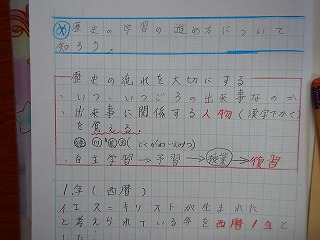 歴史の学習の進め方について
知ろう。
歴史の流れを大切にする
・いつ・いつごろの出来事なのか
・出来事に関係する人物(漢字でかく)
を覚える。
(とくがわいえみつ)
・自主学習→予習→授業→復習
1年(西暦)
イエス=キリストが生まれた
と考えられている年を西暦1年と